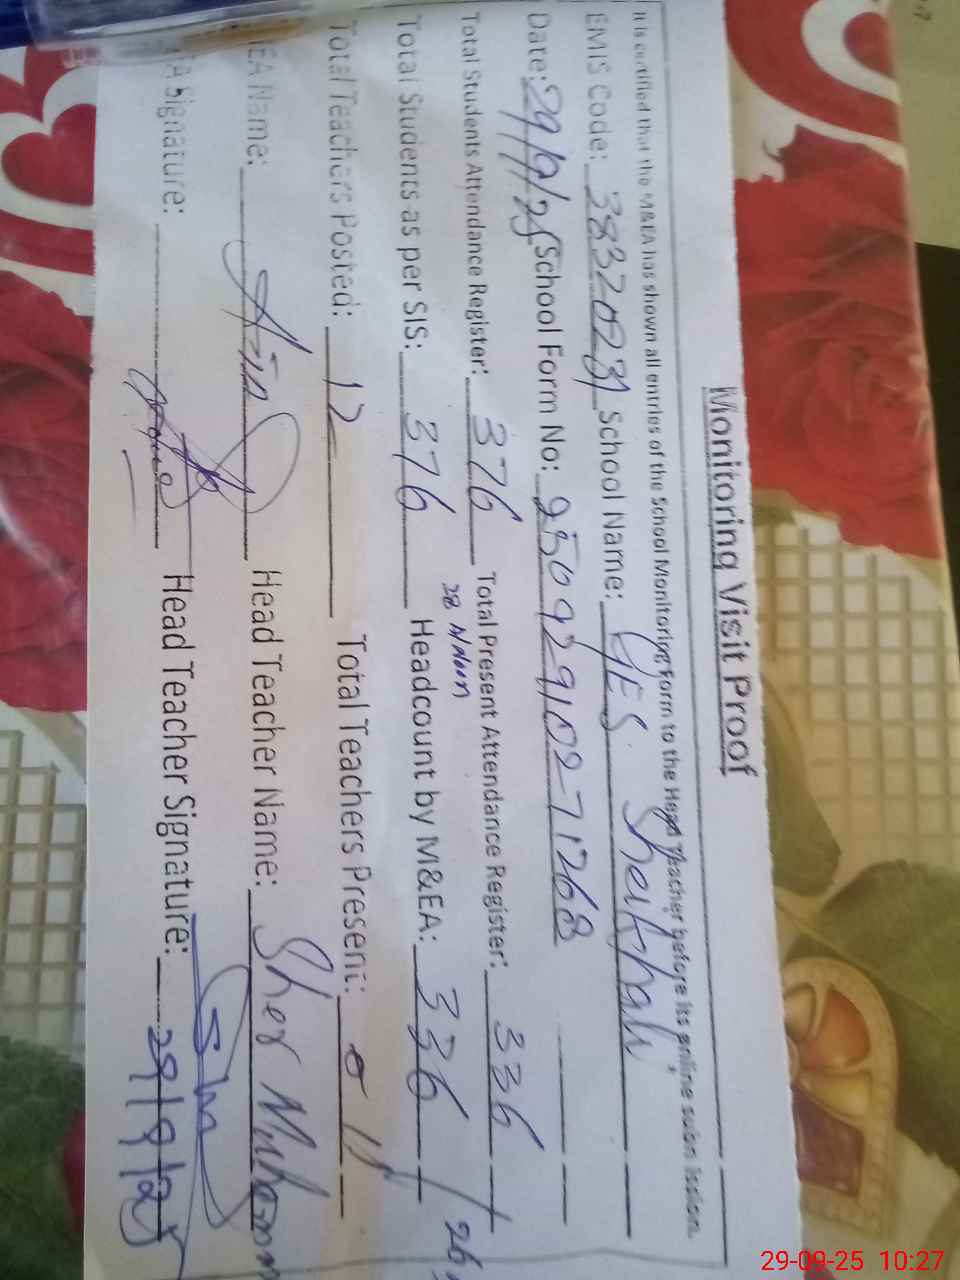 Monitoring Visit Proof
It is certified that the M&EA has shown all entries of the School Monitoring Form to the Head Teacher before its online submission.
EMIS Code: 38320231 School Name: GES Sheikhali
Date: 29/9/25 School Form No: 25092910271268
Total Students Attendance Register: 376 Total Present Attendance Register: 336
Total Students as per SIS: 376 Headcount by M&EA: 336
Total Teachers Posted: 12 Total Teachers Present: 11
EA Name: Head Teacher Name: Sher Muhamm
EA Signature: Head Teacher Signature:
29/9/25
29-09-25 10:27